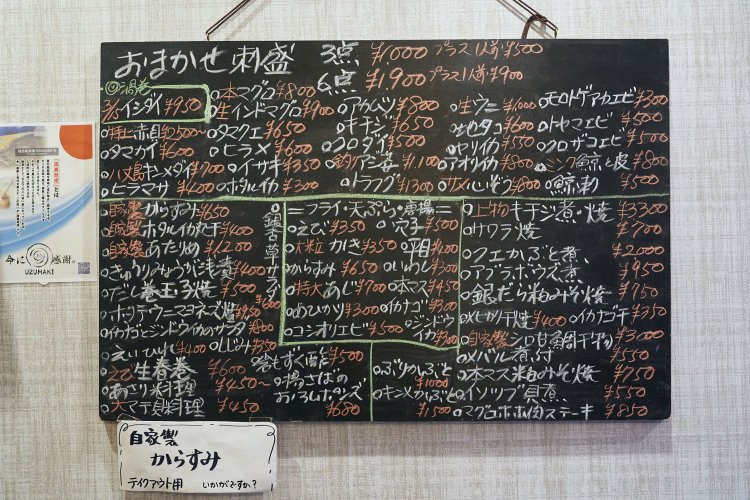 おまかせ刺盛 3点 ¥1,000 プラス1人前¥500
6点 ¥1,900 プラス1人前¥900
◎渦巻
3/15 イシダイ ¥950
特上赤貝 ¥500~
タマカイ ¥600
ハメ島キンメダイ ¥700
ヒラマサ ¥600
本マグロ ¥800
生インドマグロ ¥900
タマクエ ¥650
ヒラメ ¥600
イサキ ¥350
ホタルイカ ¥300
アカムツ ¥800
キチジ ¥650
クロダイ ¥500
釣りたて鯵 ¥1,100
トラフグ ¥1300
生ウニ ¥1,000
地タコ ¥600
ヤリイカ ¥550
アオリイカ ¥800
サメハいぞう ¥800
モロトゲアカエビ ¥300
トヤマエビ ¥500
クロザコエビ ¥500
ミンク鯨と皮 ¥800
鯨刺 ¥500
自家製 からすみ ¥650
自家製 ホタルイカ丸干 ¥400
自家製 あたりめ ¥1,200
きゅうりみょうがに浅漬 ¥400
だし巻玉子焼 ¥500
ホッテウニマヨネーズ焼 ¥950
イカナゴとジンドウイカのサラダ ¥800
えいひれ ¥400
しじみ ¥350
生春巻 ¥600
あさり料理 ¥450~
大マテ貝料理 ¥450
岩もずく酢 ¥500
揚さばのおろしポン酢 ¥680
=フライ・天ぷら・唐揚=
えび ¥350
穴子 ¥500
大粒かき ¥350
からすみ ¥650
いわし ¥300
特大あじ ¥700
本マス ¥450
めひかり ¥300
イカナゴ ¥300
コシオリエビ ¥500
ジンドウイカ ¥300
ぶりかぶと ¥1000
キンメかぶと ¥1,500
上物キチジ煮・焼 ¥3300
サワラ焼 ¥700
クエかぶと煮 ¥2,000
アブラボウズ煮 ¥950
銀だら粕みそ焼 ¥750
メヒカリ干焼 ¥400
イカナゴ干 ¥350
自家製シロ甘鯛干物 ¥3000
メバル煮付 ¥550
本マス粕みそ焼 ¥750
イソツブ貝煮 ¥550
マグロホホ肉ステーキ ¥850
命に感謝。
UZUMAKI
自家製
からすみ
テイクアウト用 いかがですか?